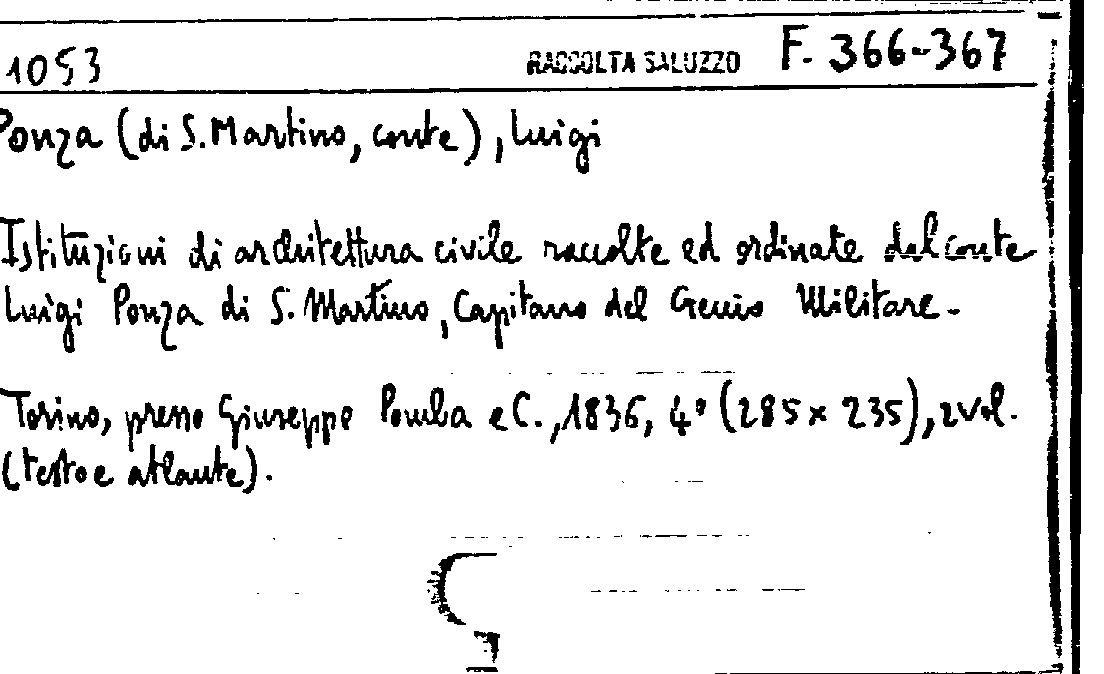 1053 RACCOLTA SALUZZO F. 366-367
Ponza (di S. Martino, conte), Luigi
Istituzioni di architettura civile raccolte ed ordinate dal conte
Luigi Ponza di S. Martino, Capitano del Genio Militare.
Torino, presso Giuseppe Pomba e C., 1836, 4° (285 x 235), 2 vol.
(testo e atlante).